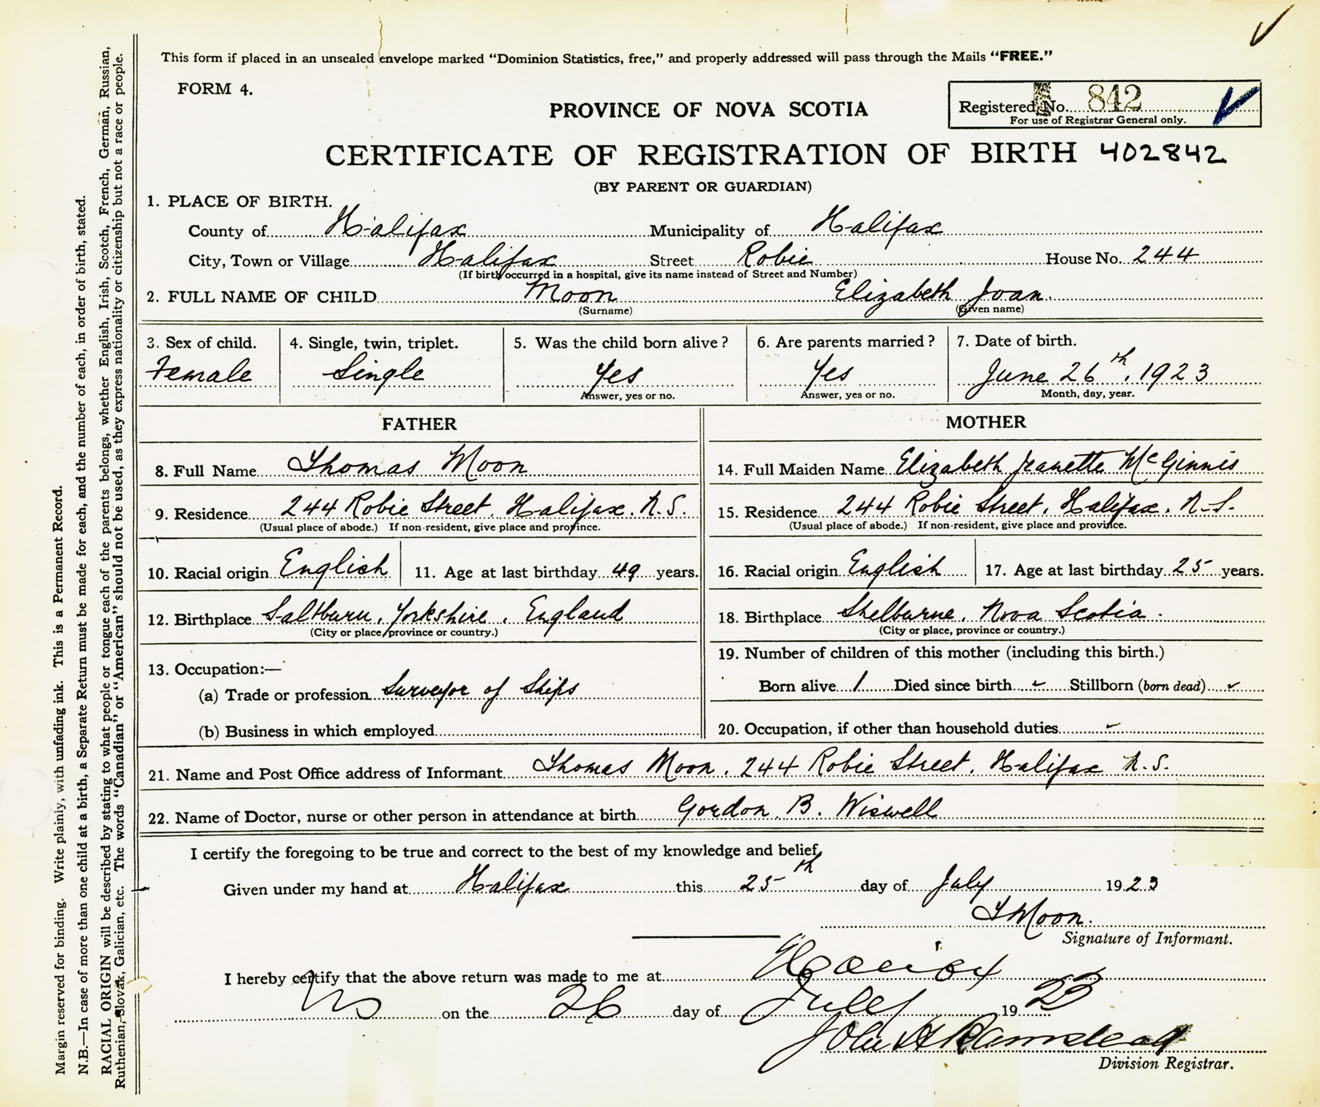 This form if placed in an unsealed envelope marked "Dominion Statistics, free," and properly addressed will pass through the Mails "FREE."
FORM 4.
PROVINCE OF NOVA SCOTIA
Registered No. 842
For use of Registrar General only.
CERTIFICATE OF REGISTRATION OF BIRTH 402842
(BY PARENT OR GUARDIAN)
1. PLACE OF BIRTH.
County of Halifax Municipality of Halifax
City, Town or Village Halifax Street Robie House No. 244
(If birth occurred in a hospital, give its name instead of Street and Number)
2. FULL NAME OF CHILD Moon Elizabeth Joan
(Surname) (Given name)
3. Sex of child. 4. Single, twin, triplet. 5. Was the child born alive? 6. Are parents married? 7. Date of birth.
Female Single Yes Yes June 26th, 1923
Answer, yes or no. Answer, yes or no. Month, day, year.
FATHER
8. Full Name Thomas Moon
9. Residence 244 Robie Street, Halifax. N.S.
(Usual place of abode.) If non-resident, give place and province.
10. Racial origin English 11. Age at last birthday 49 years.
12. Birthplace Saltburn, Yorkshire, England
(City or place, province or country.)
13. Occupation:—
(a) Trade or profession Surveyor of Ships
(b) Business in which employed
MOTHER
14. Full Maiden Name Elizabeth Jeanette McGinnis
15. Residence 244 Robie Street, Halifax, N.S.
(Usual place of abode.) If non-resident, give place and province.
16. Racial origin English 17. Age at last birthday 25 years.
18. Birthplace Shelburne, Nova Scotia.
(City or place, province or country.)
19. Number of children of this mother (including this birth.)
Born alive 1 Died since birth - Stillborn (born dead) -
20. Occupation, if other than household duties -
21. Name and Post Office address of Informant Thomas Moon, 244 Robie Street, Halifax N.S.
22. Name of Doctor, nurse or other person in attendance at birth Gordon B. Wiswell
I certify the foregoing to be true and correct to the best of my knowledge and belief,
Given under my hand at Halifax this 25th day of July 1923
T Moon.
Signature of Informant.
I hereby certify that the above return was made to me at Halifax
NS on the 26 day of July 1923
John A
Division Registrar.
Margin reserved for binding. Write plainly, with unfading ink. This is a Permanent Record.
N.B.—In case of more than one child at a birth, a Separate Return must be made for each, and the number of each, in order of birth, stated.
RACIAL ORIGIN will be described by stating to what people or tongue each of the parents belongs, whether English, Irish, Scotch, French, German, Russian,
Ruthenian, Slovak, Galician, etc. The words "Canadian" or "American" should not be used, as they express nationality or citizenship but not a race or people.